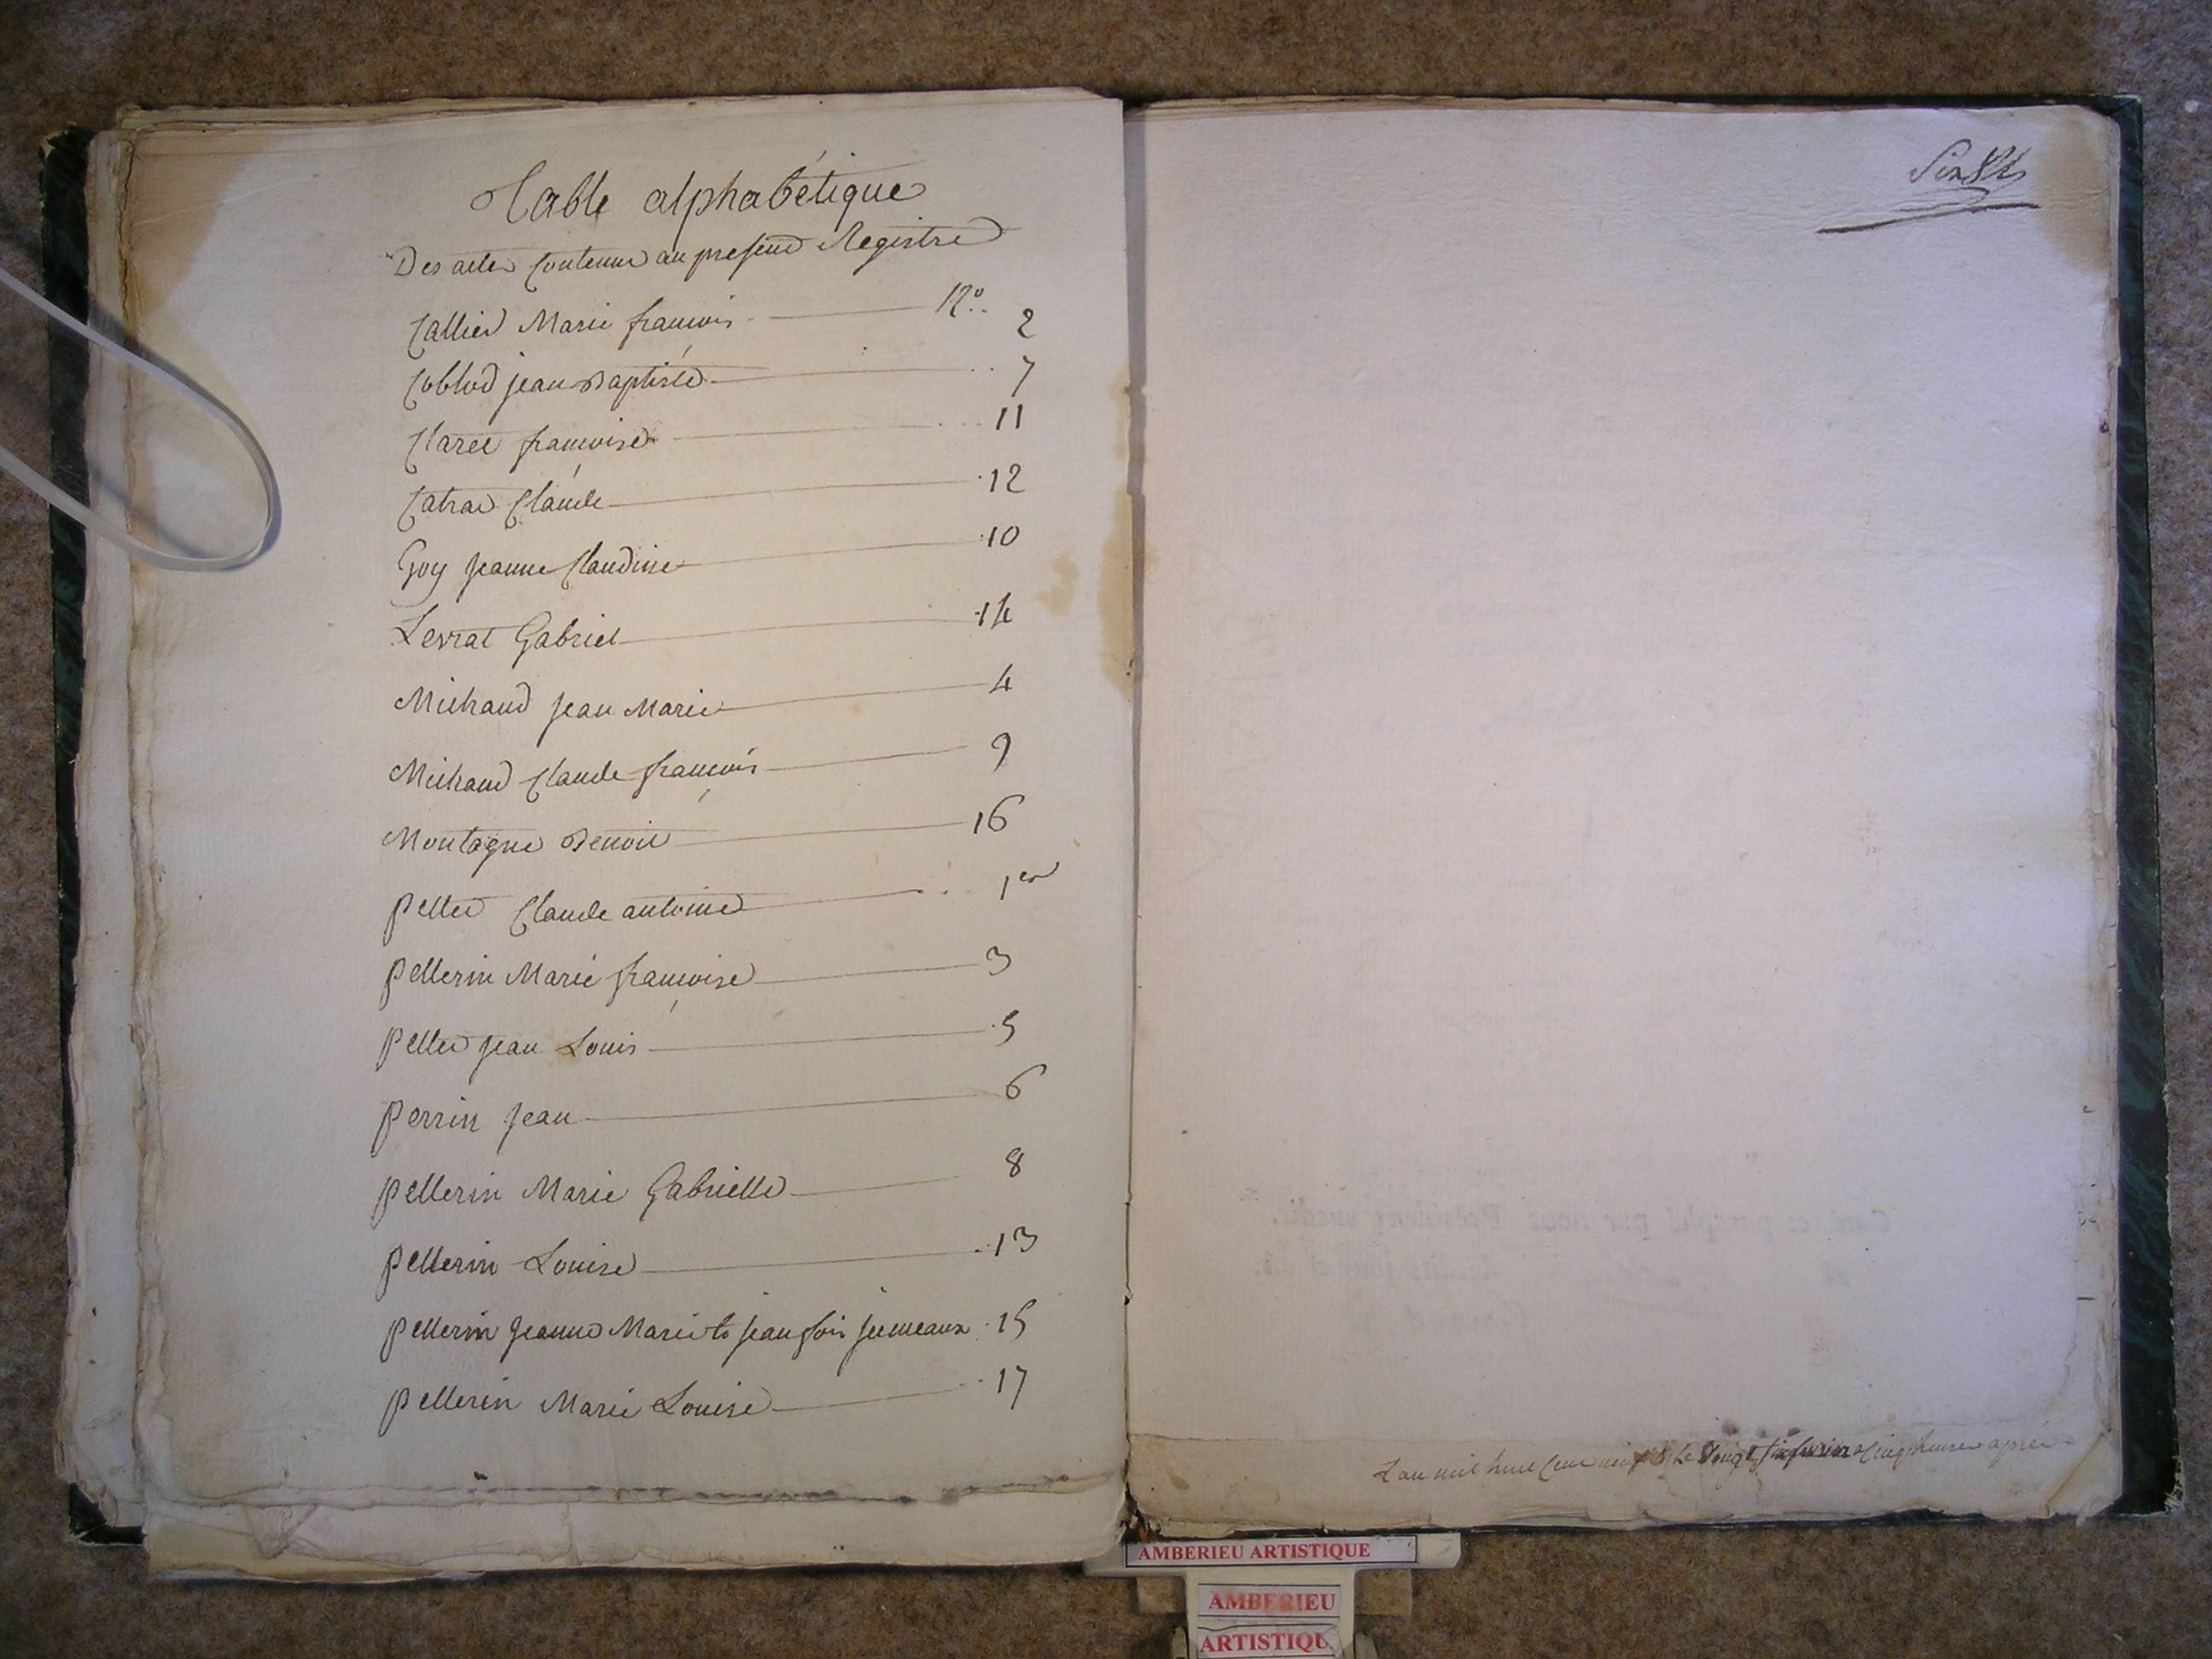 Table alphabétique
Des actes Contenus au present Registre
Callier Marie françois N.° 2
Coblod jean Baptiste 7
Claret françoise 11
Catrad Claude 12
Goy jeanne Claudine 10
Levrat Gabriel 14
Michaud jean Marie 4
Michaud Claude françois 9
Montagne Benoit 16
pellet Claude antoine 1er
pellerin Marie françoise 3
pellet jean Louis 5
perrin jean 6
pellerin Marie Gabrielle 8
pellerin Louise 13
pellerin jeanne Marie & jean fois jumeaux 15
pellerin Marie Louise 17
Six
L'an mil huit cent neuf & le Vingt six cinq heures après
AMBERIEU ARTISTIQUE
AMBERIEU
ARTISTIQU